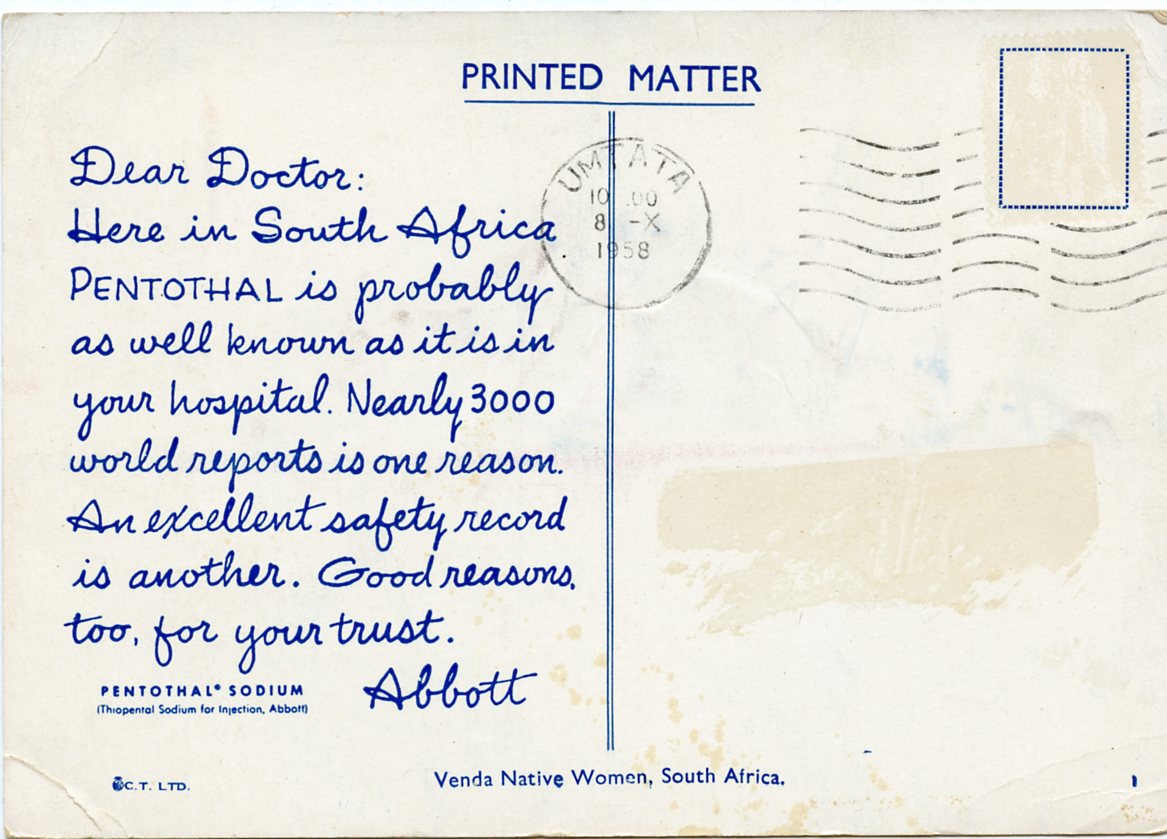 PRINTED MATTER
Dear Doctor:
Here in South Africa
PENTOTHAL is probably
as well known as it is in
your hospital. Nearly 3000
world reports is one reason.
An excellent safety record
is another. Good reasons,
too, for your trust.
Abbott
PENTOTHAL® SODIUM
(Thiopental Sodium for Injection, Abbott)
C.T. LTD.
Venda Native Women, South Africa.
UMTATA
10 .00
8 -X
1958